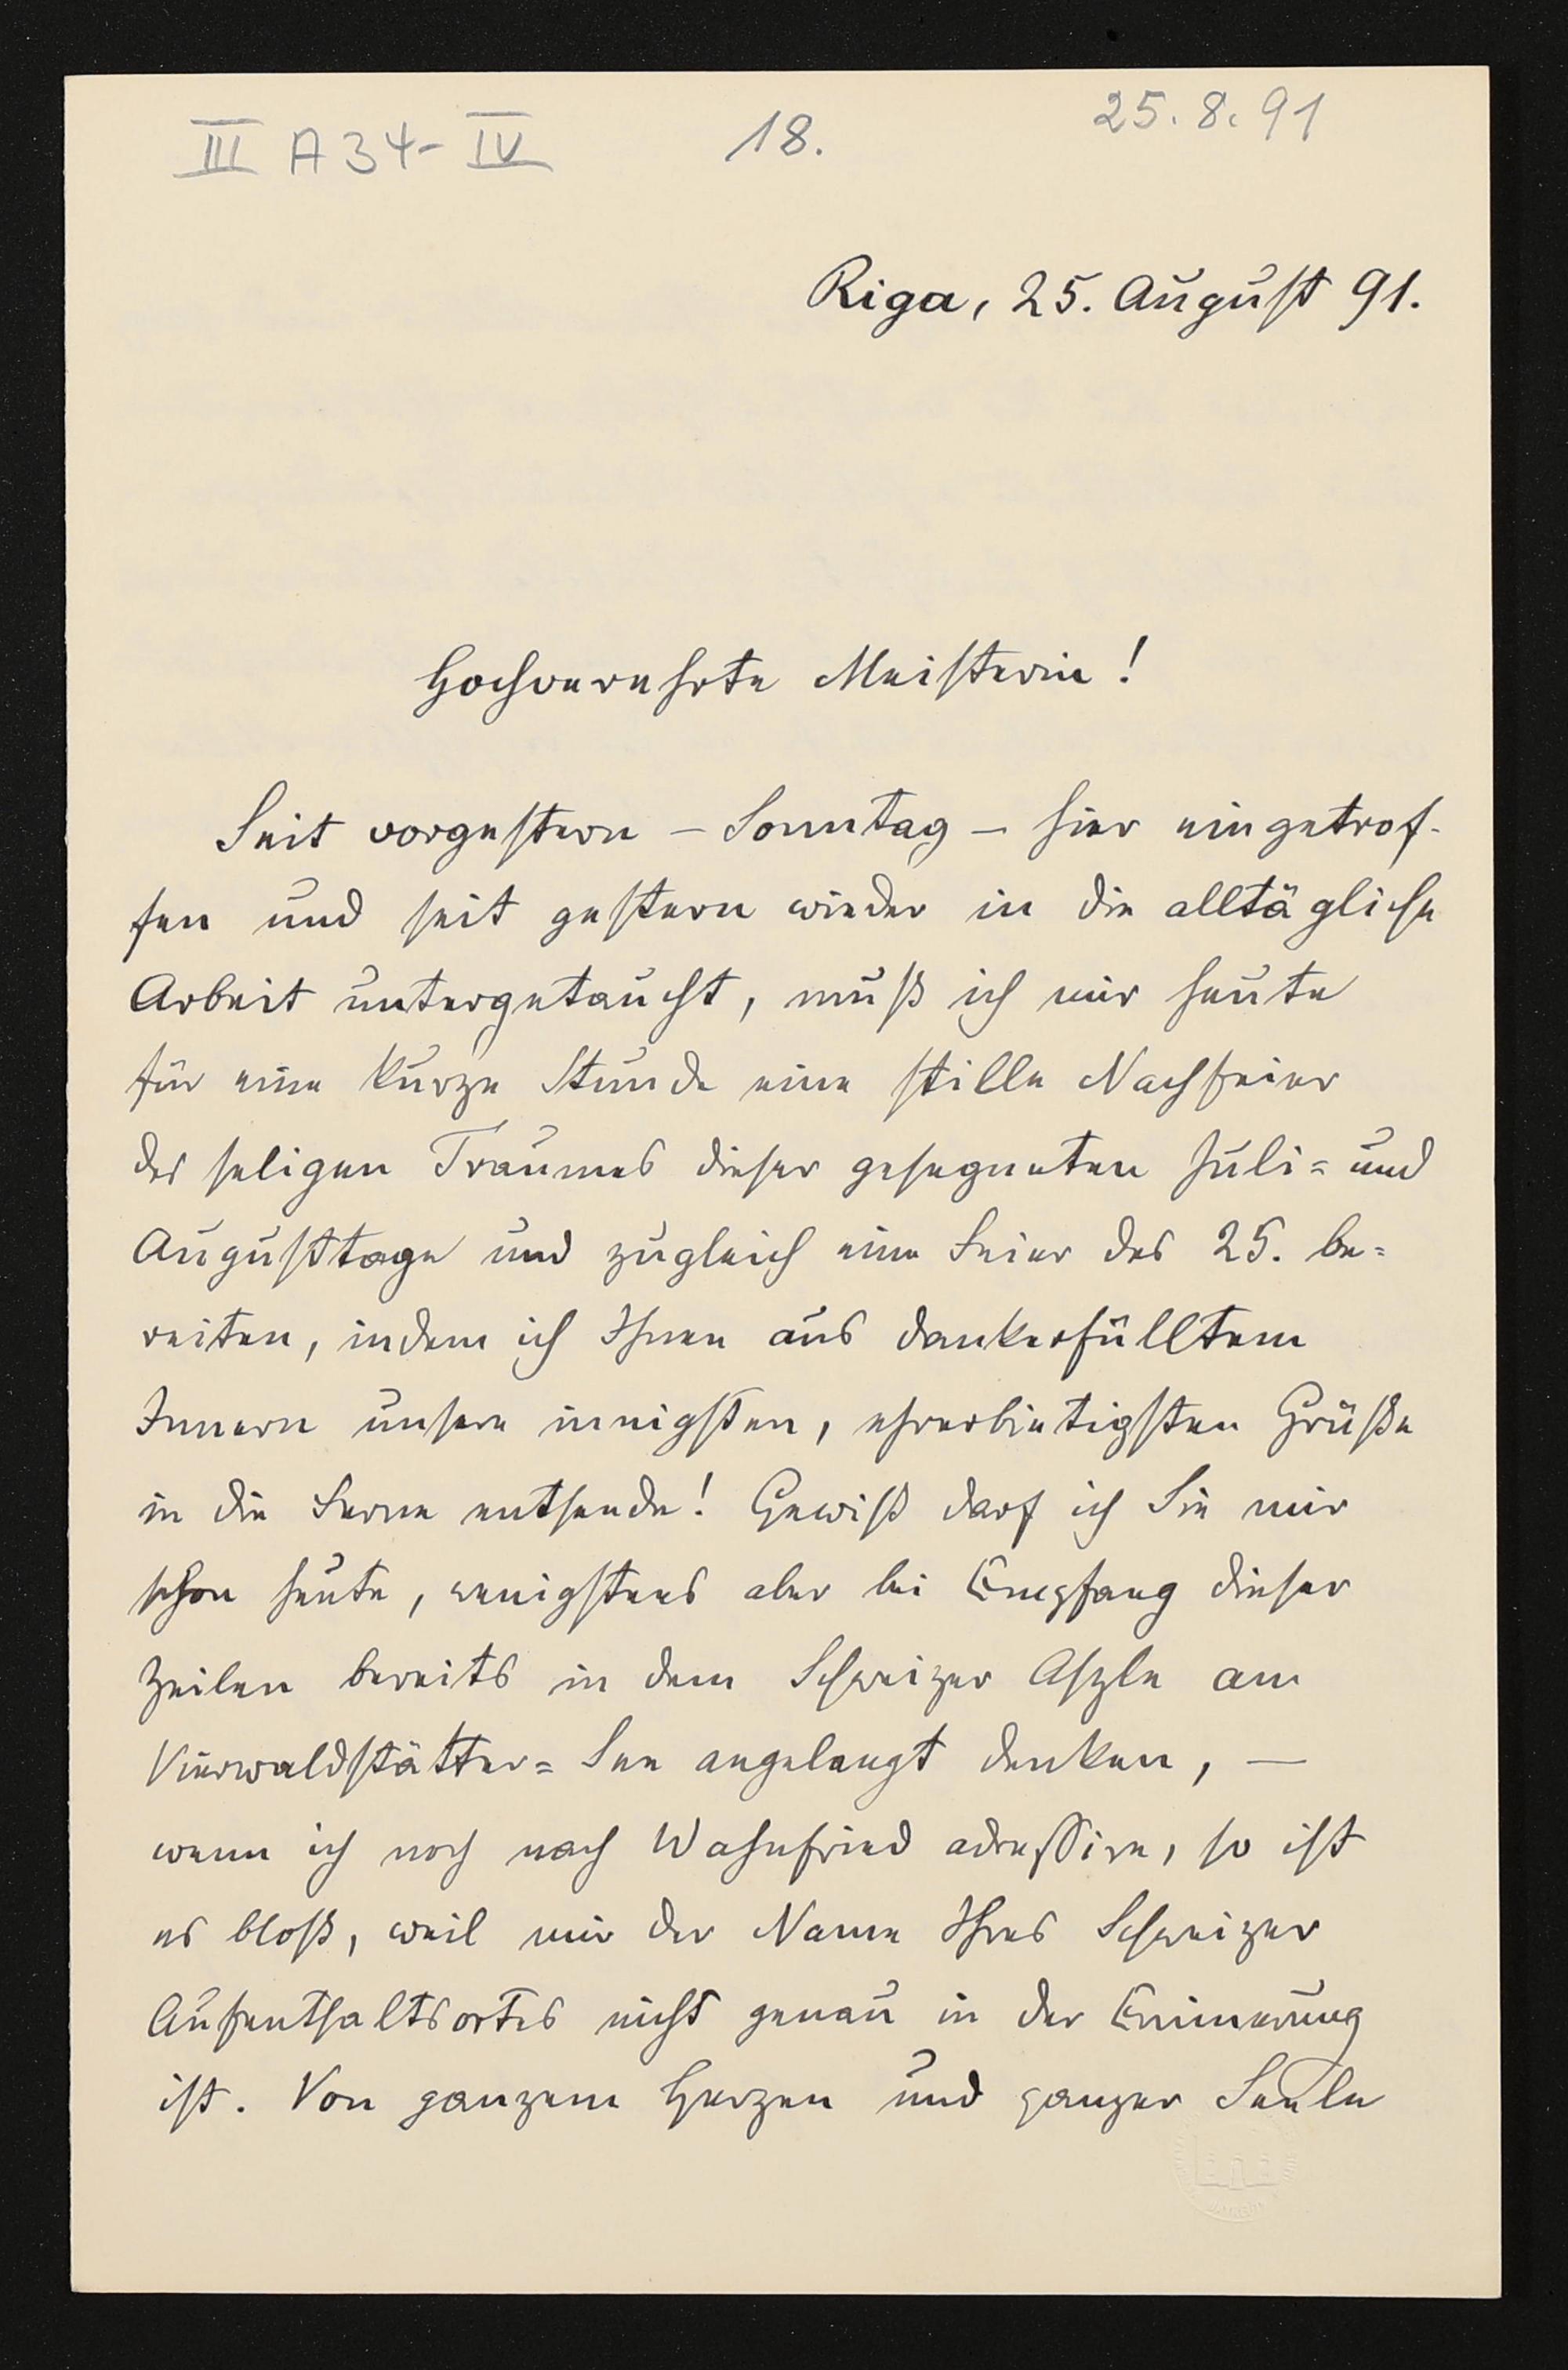 III A 34-IV
18.
25.8.91
Riga, 25. August 91.
Hochverehrte Meisterin!
Seit vorgestern – Sonntag – hier eingetrof-
fen und seit gestern wieder in die alltägliche
Arbeit untergetaucht, muß ich mir heute
für eine kurze Stunde eine stille Nachfeier
des seligen Traumes dieser gesegneten Juli= und
Augusttage und zugleich eine Feier des 25. be=
reiten, indem ich Ihnen aus dankerfülltem
Innern unsere innigsten, ehrerbietigsten Grüße
in die Ferne entsende! Gewiß darf ich Sie mir
schon heute, wenigstens aber bei Empfang dieser
Zeilen bereits in dem Schweizer Asyle am
Vierwaldstätter= See angelangt denken, —
wenn ich noch nach Wahnfried adressire, so ist
es bloß, weil mir der Name Ihres Schweizer
Aufenthaltsortes nicht genau in der Erinnerung
ist. Von ganzem Herzen und ganzer Seele